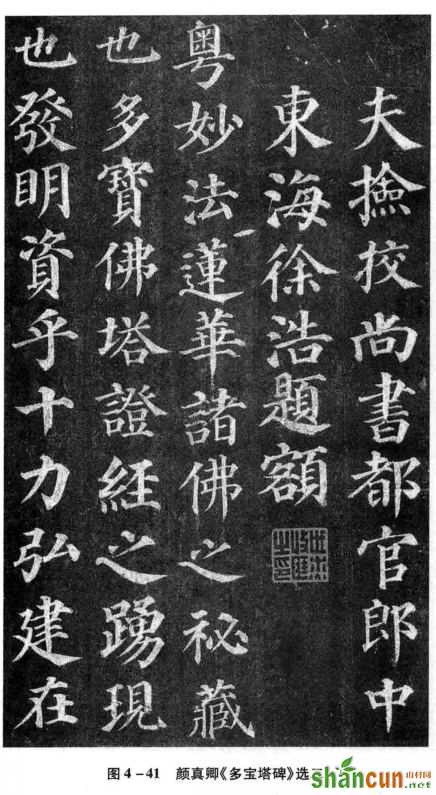 夫撿挍尚書都官郎中
東海徐浩題額
粤妙法蓮華諸佛之祕藏
也多寶佛塔證經之踴現
也發明資乎十力弘建在
图4-41 颜真卿《多宝塔碑》选
shancun
山村网
.net